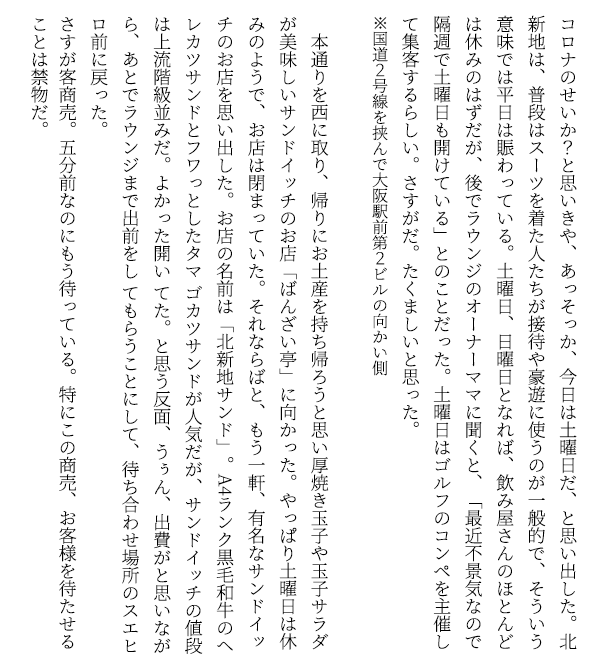 コロナのせいか？と思いきや、あっそっか、今日は土曜日だ、と思い出した。北
新地は、普段はスーツを着た人たちが接待や豪遊に使うのが一般的で、そういう
意味では平日は賑わっている。土曜日、日曜日となれば、飲み屋さんのほとんど
は休みのはずだが、後でラウンジのオーナーママに聞くと、「最近不景気なので
隔週で土曜日も開けている」とのことだった。土曜日はゴルフのコンペを主催し
て集客するらしい。さすがだ。たくましいと思った。
※国道2号線を挟んで大阪駅前第2ビルの向かい側
本通りを西に取り、帰りにお土産を持ち帰ろうと思い厚焼き玉子や玉子サラダ
が美味しいサンドイッチのお店「ばんざい亭」に向かった。やっぱり土曜日は休
みのようで、お店は閉まっていた。それならばと、もう一軒、有名なサンドイッ
チのお店を思い出した。お店の名前は「北新地サンド」。A4ランク黒毛和牛のヘ
レカツサンドとフワっとしたタマゴカツサンドが人気だが、サンドイッチの値段
は上流階級並みだ。よかった開いてた。と思う反面、うぅん、出費がと思いなが
ら、あとでラウンジまで出前をしてもらうことにして、待ち合わせ場所のスエヒ
ロ前に戻った。
さすが客商売。五分前なのにもう待っている。特にこの商売、お客様を待たせる
ことは禁物だ。